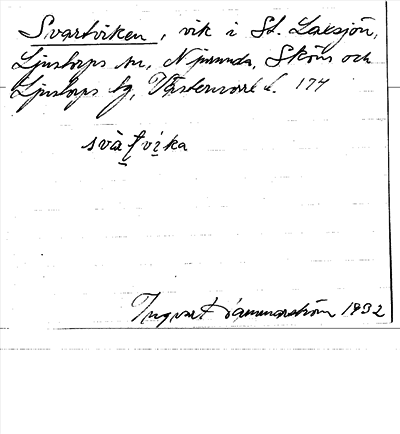 Svartviken, vik i St. Laxsjön,
Ljustorps sn, Njurunda, Sköns och
Ljustorps tg, Västernorrl. l. 174
svàṭvika
Ingvar Hammarström 1932